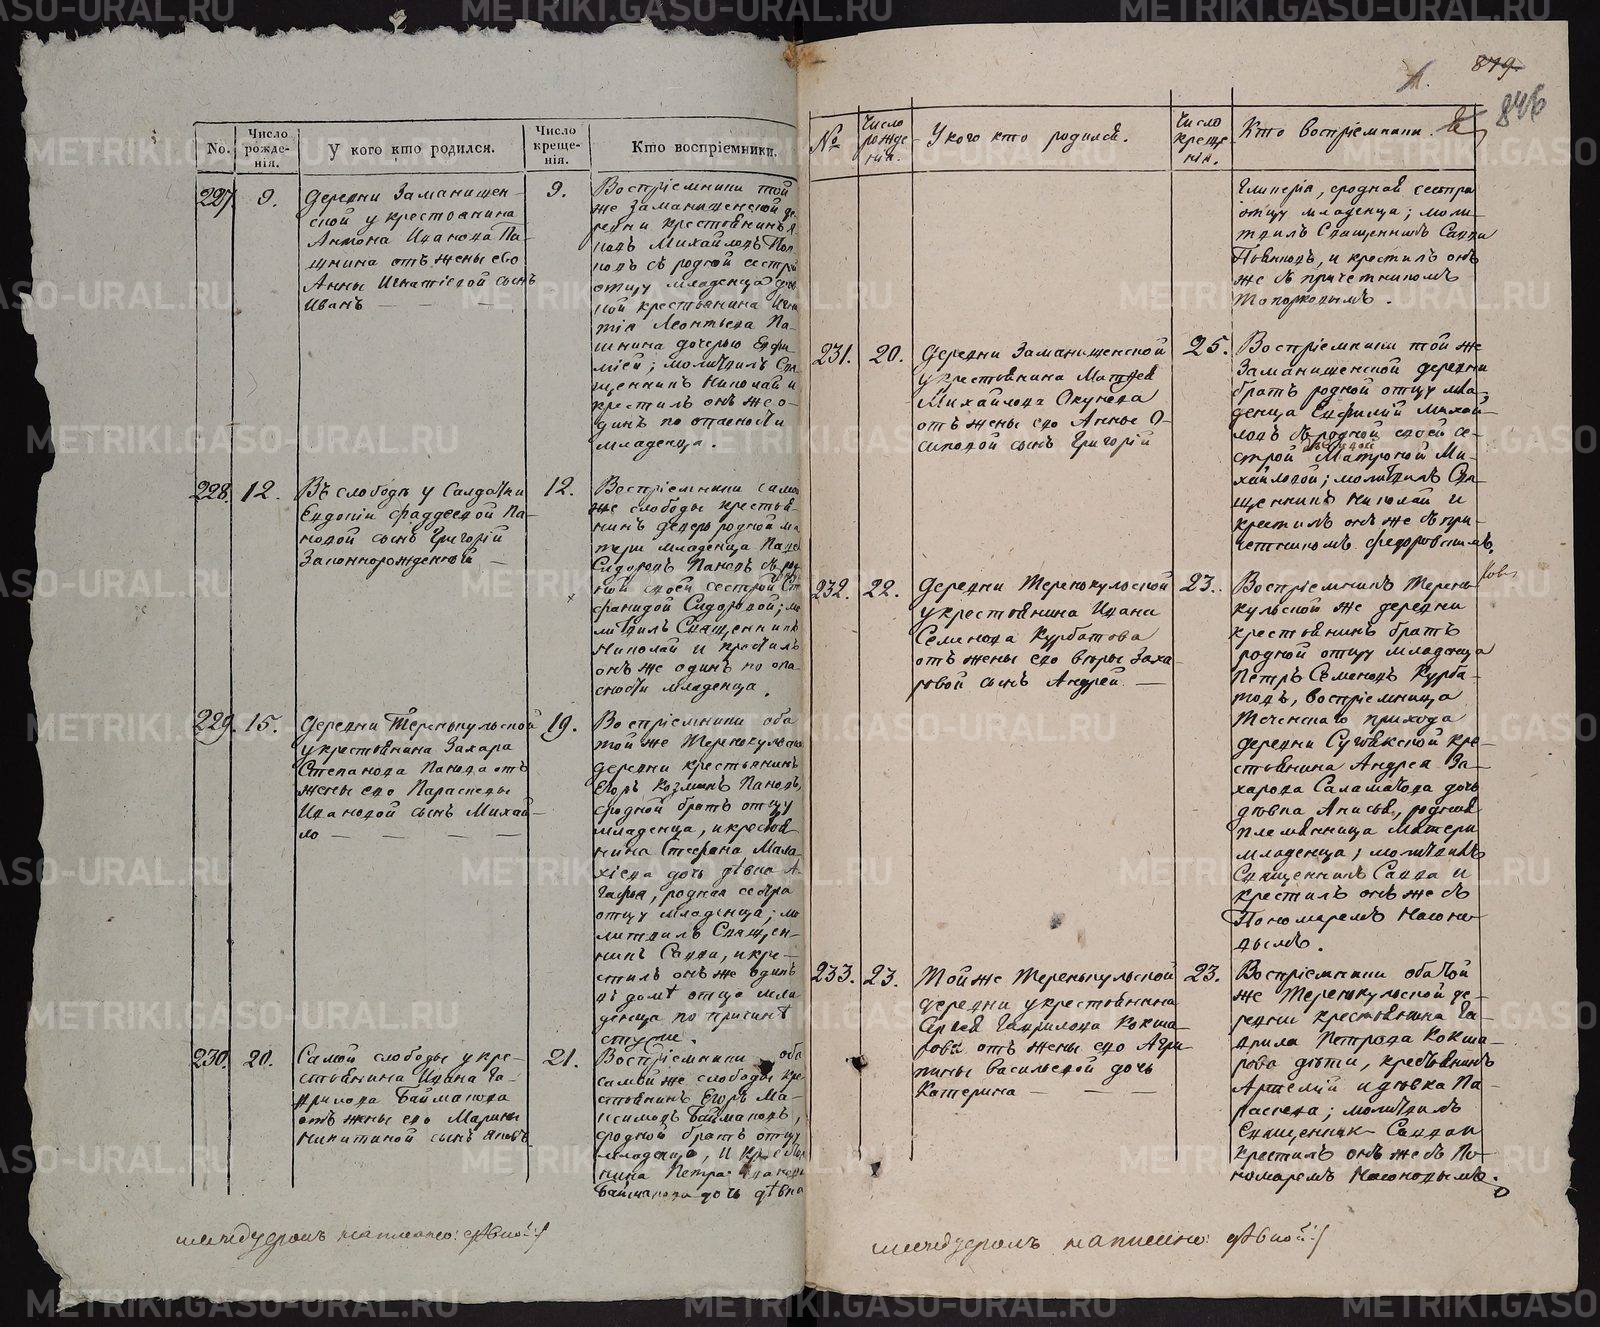 No.
Число рожде- нія.
У кого кто родился.
Число креще- нія.
Кто воспріемники.
227
9.
Деревни Заманищен-
ской у крестьянина
Антона Иванова Па-
шнина отъ жены его
Анны Игнатіевой сынъ
Иванъ
9.
Воспріемники той
же Заманищенской де-
ревни крестьянинъ
Михайловъ Поп-
новъ съ родной сестрой
отцу младенца
крестьянина Игна-
тія Леонтьева Па-
шнина дочерью Евфи-
міей; молитвилъ Свя-
щенникъ Николай и
крестилъ онъ же о-
динъ по опасности
младенца.
228.
12.
Въ слободѣ у Солдатки
Евдокіи Фаддеевой Па-
новой сынъ Григорій
Законнорожденный
12.
Воспріемники самой
же слободы крестья-
нинъ деверь родной ма-
тери младенца
Сидоровъ Пановъ съ род-
ной своей сестрой Сте-
фанидой Сидоровой; мо-
литвилъ Священникъ
Николай и крестилъ
онъ же одинъ по опа-
сности младенца.
229.
15.
Деревни Теренкульской
у крестьянина Захара
Степанова Панова отъ
жены его Параскевы
Ивановой сынъ Михаи-
ло
19.
Воспріемники оба
той же Теренкульской
деревни крестьянинъ
Егоръ Козминъ Пановъ,
сродной братъ отцу
младенца, и крестья-
нина Стефана Мала-
хіева дочь дѣвка А-
гафья, родная сестра
отцу младенца; мо-
литвилъ Священ-
никъ Савва, и кре-
стилъ онъ же одинъ
въ домѣ отца мла-
денца по причинѣ
стужи.
230.
20.
Самой слободы у кре-
стьянина Ивана Га-
врилова Байманова
отъ жены его Марины
Никитиной сынъ Яковъ.
21.
Воспріемники оба
самой же слободы кре-
стьянинъ Егоръ Ма-
ксимовъ Баймановъ,
сродной братъ отцу
младенца, и крестья-
нина Петра Иванова
Байманова дочь дѣвка
написано: дѣвкой:/
879.
846
№
Число рожде- нія.
У кого кто родился.
Число креще- нія.
Кто воспріемники.
Гликерія, сродная сестра
отцу младенца; моли-
твилъ Священникъ Савва
и крестилъ онъ
же съ причетникомъ
Топорковымъ.
231.
20.
Деревни Заманищенской
у крестьянина Матвея
Михайлова Окунева
отъ жены его Анны О-
сиповой сынъ Григорій
25.
Воспріемники той же
Заманищенской деревни
братъ родной отцу мла-
денца Евфимій Михай-
ловъ съ родной своей се-
строй Матроной Ми-
хайловой; молитвилъ Свя-
щенникъ Николай и
крестилъ онъ же съ при-
четникомъ Федоровскимъ.
232.
22.
Деревни Теренкульской
у крестьянина Ивана
Семенова Курбатова
отъ жены его Вѣры Заха-
ровой сынъ Андрей
23.
Воспріемникъ Терен-
кульской же деревни
крестьянинъ братъ
родной отцу младенца
Петръ Семеновъ Курба-
товъ, воспріемница
Теченскаго прихода
деревни Сугоякской кре-
стьянина Андрея За-
харова Саламатова дочь
дѣвка Анисья, родная
племянница матери
младенца; молитвилъ
Священникъ Савва и
крестилъ онъ же съ
Пономаремъ Насоно-
вымъ.
233.
23.
Той же Теренкульской
деревни у крестьянина
Сергѣя Гаврилова Кокша-
рова отъ жены его Агри-
пины Васильевой дочь
Катерина
23.
Воспріемники оба той
же Теренкульской де-
ревни крестьянина Га-
врила Петрова Кокша-
рова дѣти, крестьянинъ
Артемій и дѣвка Па-
раскева; молитвилъ
Священникъ Савва и
крестилъ онъ же съ По-
номаремъ Насоновымъ.
написано: дѣвкой:/
METRIKI.GASO-URAL.RU